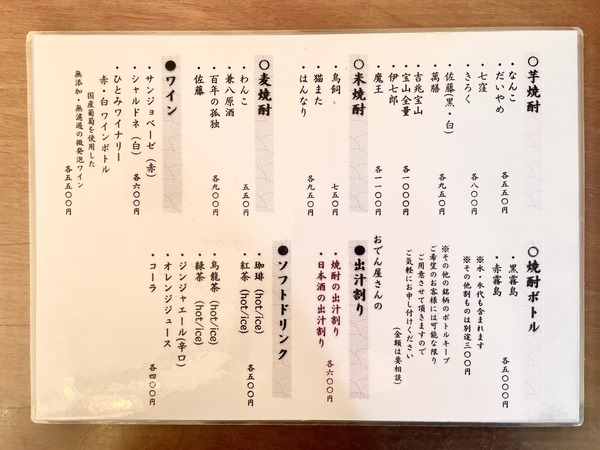 ○芋焼酎
・なんこ
・だいやめ
各五五〇円
・七窪
・きろく
各八〇〇円
・佐藤(黒・白)
・萬膳
各九五〇円
・吉兆宝山
・宝山全量
各一〇〇〇円
・伊七郎
・魔王
各一一〇〇円
○米焼酎
・鳥飼
七五〇円
・猫また
・はんなり
各九五〇円
○麦焼酎
・わんこ
五五〇円
・兼八原酒
・百年の孤独
・佐藤
各九〇〇円
●ワイン
・サンジョベーゼ(赤)
・シャルドネ(白)
各六〇〇円
・ひとみワイナリー
赤・白 ワインボトル
国産葡萄を使用した
無添加・無濾過の微発泡ワイン
各五五〇〇円
○焼酎ボトル
・黒霧島
・赤霧島
各五〇〇〇円
※水・氷代も含まれます
※その他割ものは別途三〇〇円
※その他の銘柄のボトルキープ
ご希望のお客様には可能な限り
ご用意させて頂きますので
ご気軽にお申し付けください
(金額は要相談)
おでん屋さんの
●出汁割り
・焼酎の出汁割り
・日本酒の出汁割り
各六〇〇円
●ソフトドリンク
・珈琲 (hot/ice)
・紅茶 (hot/ice)
各五〇〇円
・烏龍茶 (hot/ice)
・緑茶 (hot/ice)
・ジンジャエール(辛口)
・オレンジジュース
・コーラ
各四〇〇円